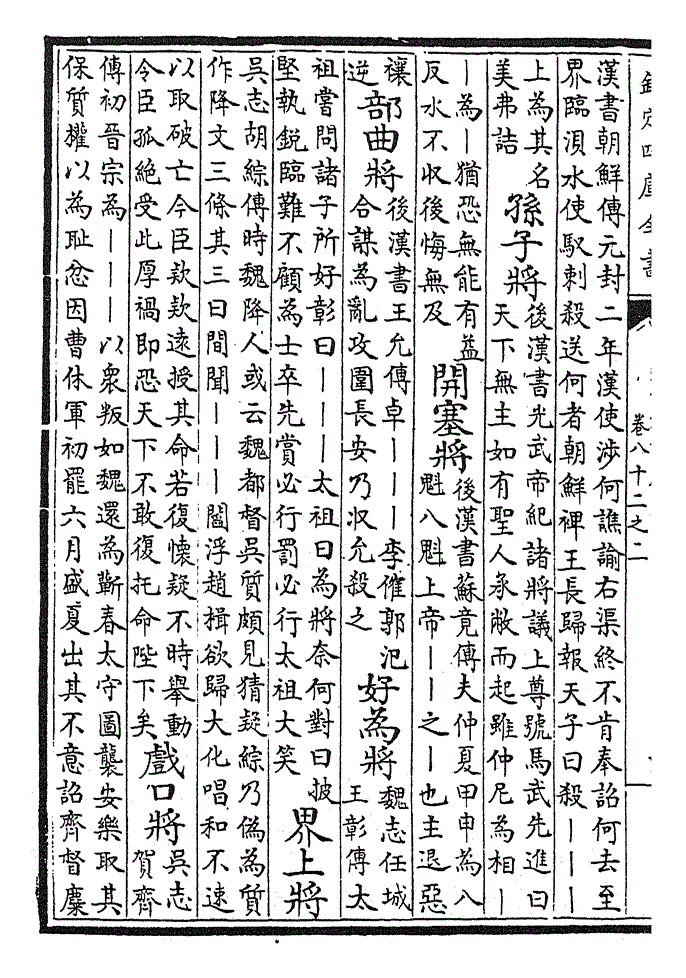 欽定四庫全書
卷八十二之二
漢書朝鮮傳元封二年漢使涉何譙諭右渠終不肯奉詔何去至
界臨浿水使馭刺殺送何者朝鮮裨王長歸報天子曰殺———
上為其名
美弗詰
孫子將
後漢書光武帝紀諸將議上尊號馬武先進曰
天下無主如有聖人承敝而起雖仲尼為相—
—為—猶恐無能有益
反水不收後悔無及
開塞將
後漢書蘇竟傳夫仲夏甲申為八
魁八魁上帝——之—也主退惡
禳
逆
部曲將
後漢書王允傳卓———李傕郭汜
合謀為亂攻圍長安乃收允殺之
好為將
魏志任城
王彰傳太
祖嘗問諸子所好彰曰———太祖曰為將奈何對曰披
堅執銳臨難不顧為士卒先賞必行罰必行太祖大笑
界上將
吳志胡綜傳時魏降人或云魏都督吳質頗見猜疑綜乃偽為質
作降文三條其三曰間聞———閻浮趙楫欲歸大化唱和不速
以取破亡今臣款款遠授其命若復懷疑不時舉動
令臣孤絶受此厚禍即恐天下不敢復托命陛下矣
戲口將
吳志
賀齊
傳初晉宗為———以衆叛如魏還為蘄春太守圖襲安樂取其
保質權以為耻忿因曹休軍初罷六月盛夏出其不意詔齊督麋